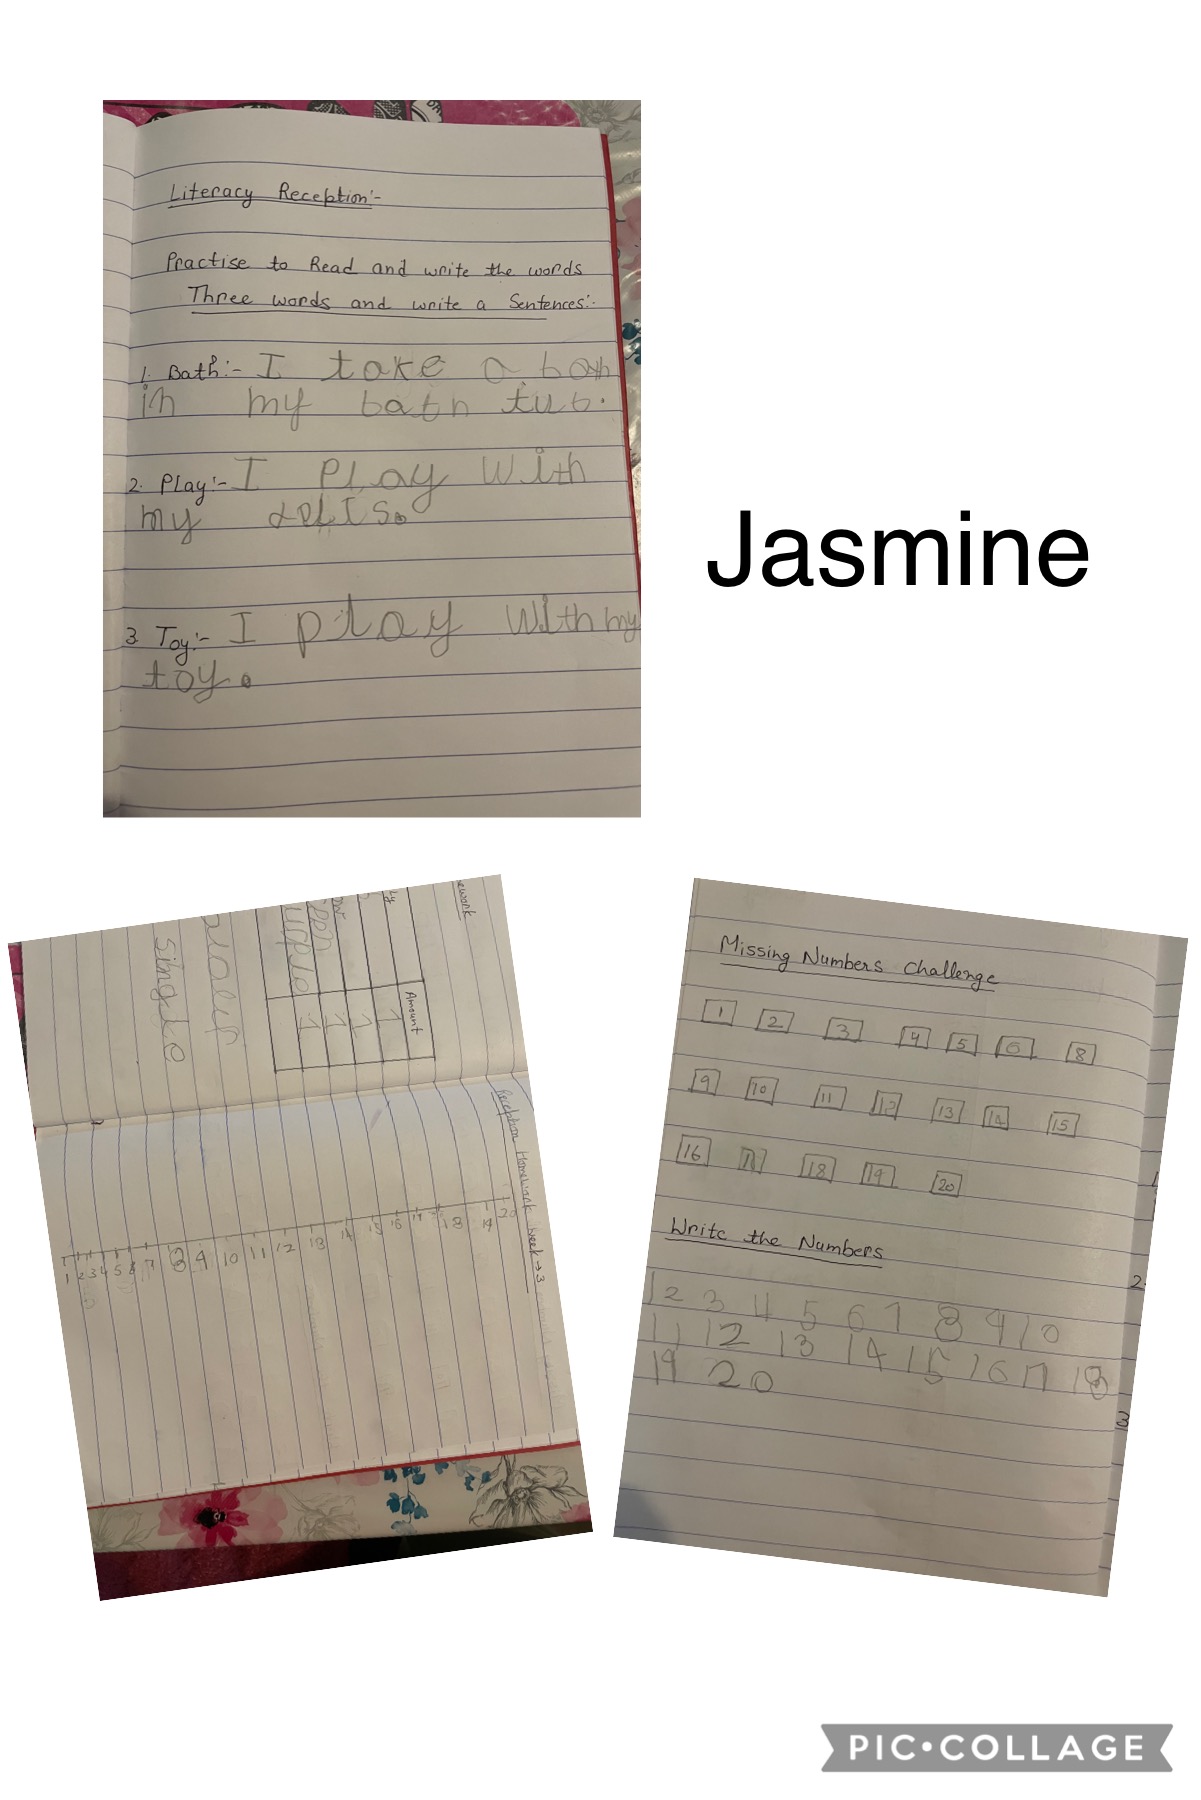 Literacy Reception:-
Practise to Read and write the words
Three words and write a Sentences:-
1. Bath:- I take a bath
in my bath tub.
2. Play:- I Play with
my
3. Toy:- I play with my
toy.
Jasmine
Amount
1
1
1
1
Single
Reception Homework Week → 3
1 2 3 4 5 6 7 8 9 10 11 12 13 14 15 16 17 18 19 20
Missing Numbers Challenge
1 2 3 4 5 6 8
9 10 11 12 13 14 15
16 17 18 19 20
Write the Numbers
1 2 3 4 5 6 7 8 9 10
11 12 13 14 15 16 17 18
19 20
PIC•COLLAGE